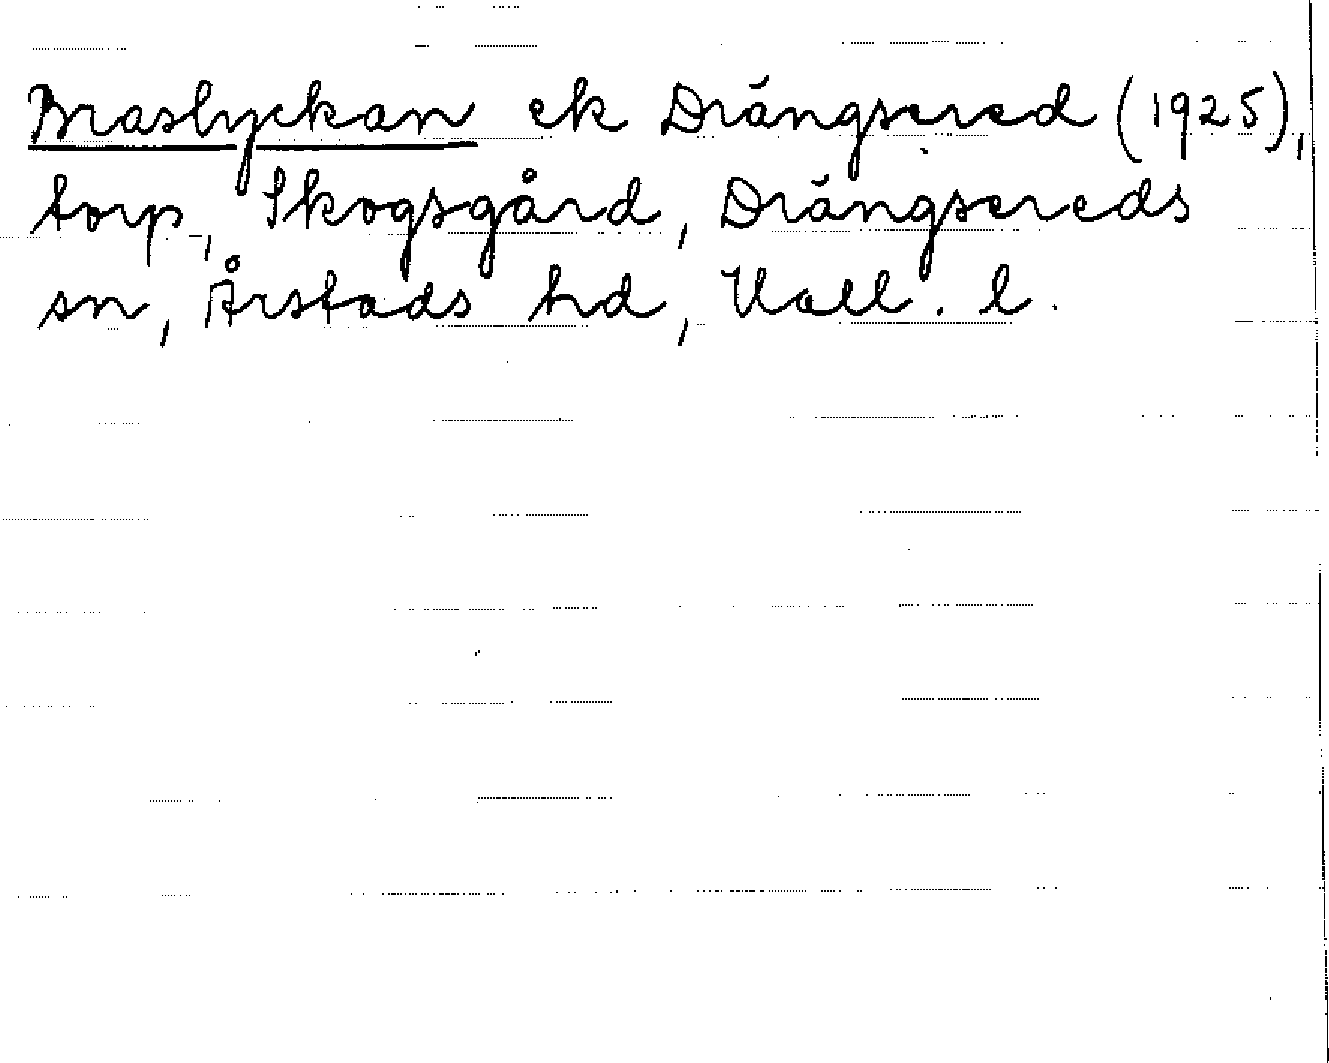 Braslyckan ek Drängsered (1925),
torp, Skogsgård, Drängsereds
sn, Årstads hd, Hall. l.